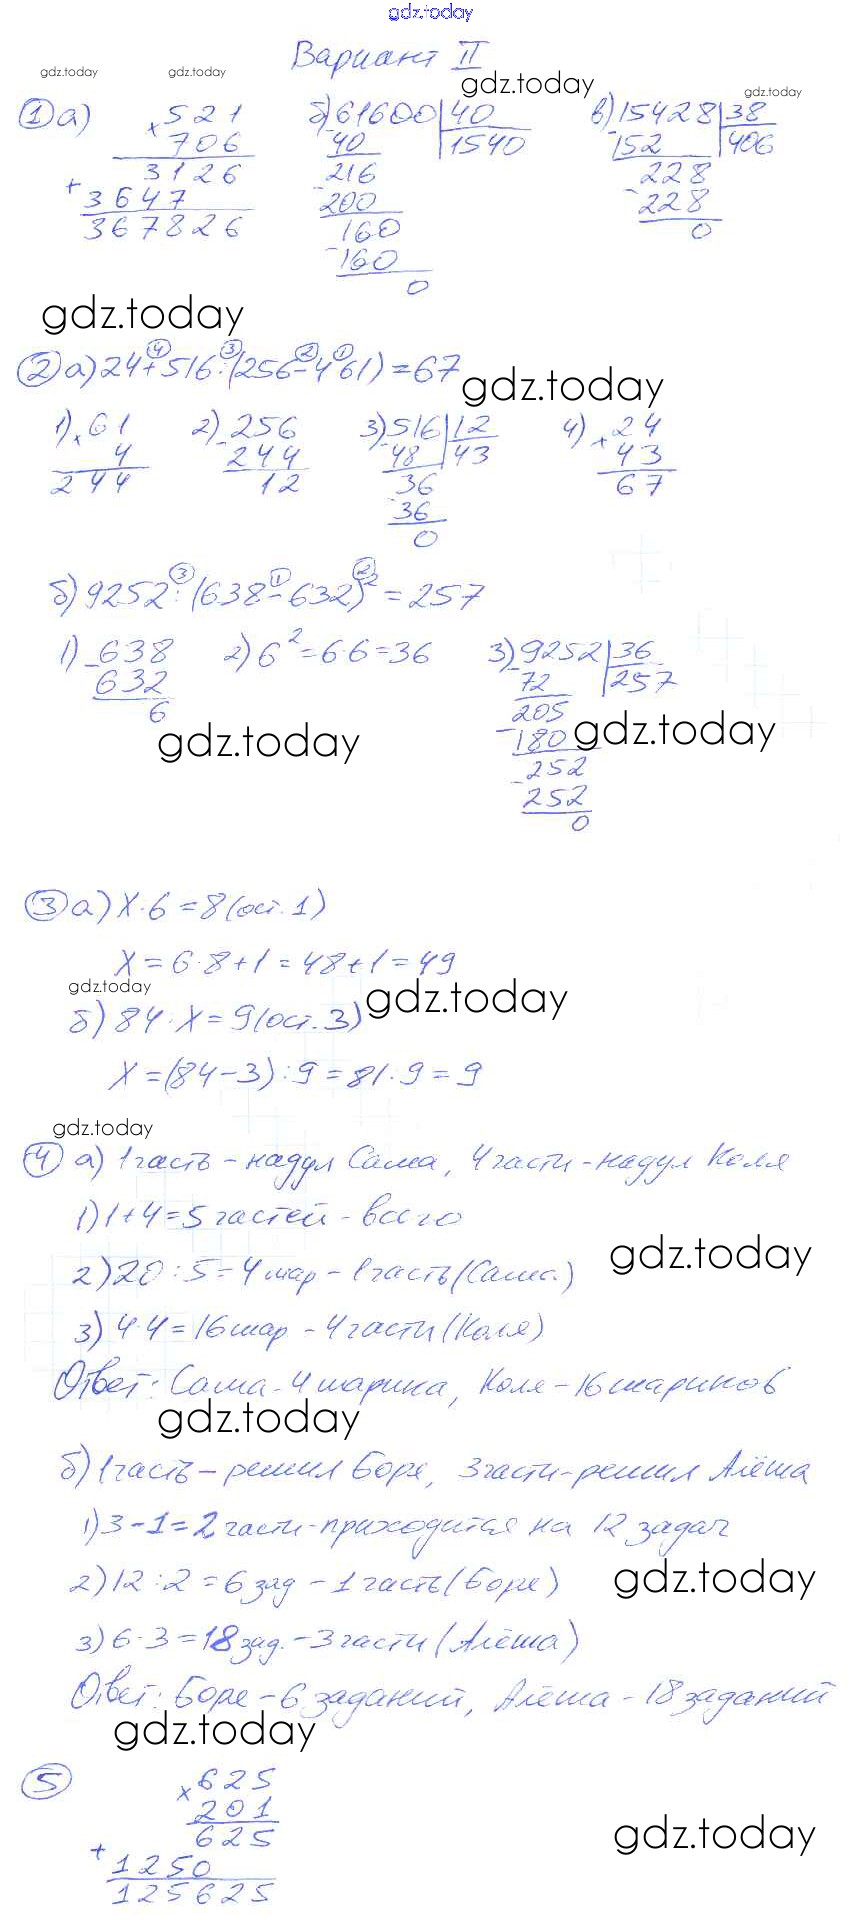 gdz.today
Вариант II
gdz.today gdz.today gdz.today gdz.today
① а) × 521 б) 61600 | 40 в) 15428 | 38
706 - 40 1540 - 152 406
3126 216 228
+ 3647 - 200 - 228
367826 160 0
- 160
0
gdz.today
② а) 24+516:(256-4·61)=67
④ ③ ② ①
gdz.today
1) × 61 2) - 256 3) - 516 | 12 4) × 24
4 244 48 43 43
244 12 36 67
- 36
0
б) 9252:(638-632)²=257
③ ① ②
1) - 638 2) 6²=6·6=36 3) - 9252 | 36
632 72 257
6 205
gdz.today - 180 gdz.today
252
- 252
0
③ а) X·6=8(ост.1)
X=6·8+1=48+1=49
gdz.today gdz.today
б) 84·X=9(ост.3)
X=(84-3):9=81:9=9
gdz.today
④ а) 1 часть - надул Саша, 4 части - надул Коля
1) 1+4=5 частей - всего
gdz.today
2) 20:5=4 шар - 1 часть (Саша)
3) 4·4=16 шар - 4 части (Коля)
Ответ: Саша - 4 шарика, Коля - 16 шариков
gdz.today
б) 1 часть - решил Боря, 3 части - решил Алёша
1) 3-1=2 части - приходится на 12 задач
2) 12:2=6 зад - 1 часть (Боре)
gdz.today
3) 6·3=18 зад. - 3 части (Алёша)
Ответ: Боре - 6 заданий, Алёша - 18 заданий
gdz.today
⑤ × 625
201
625
gdz.today
+ 1250
125625